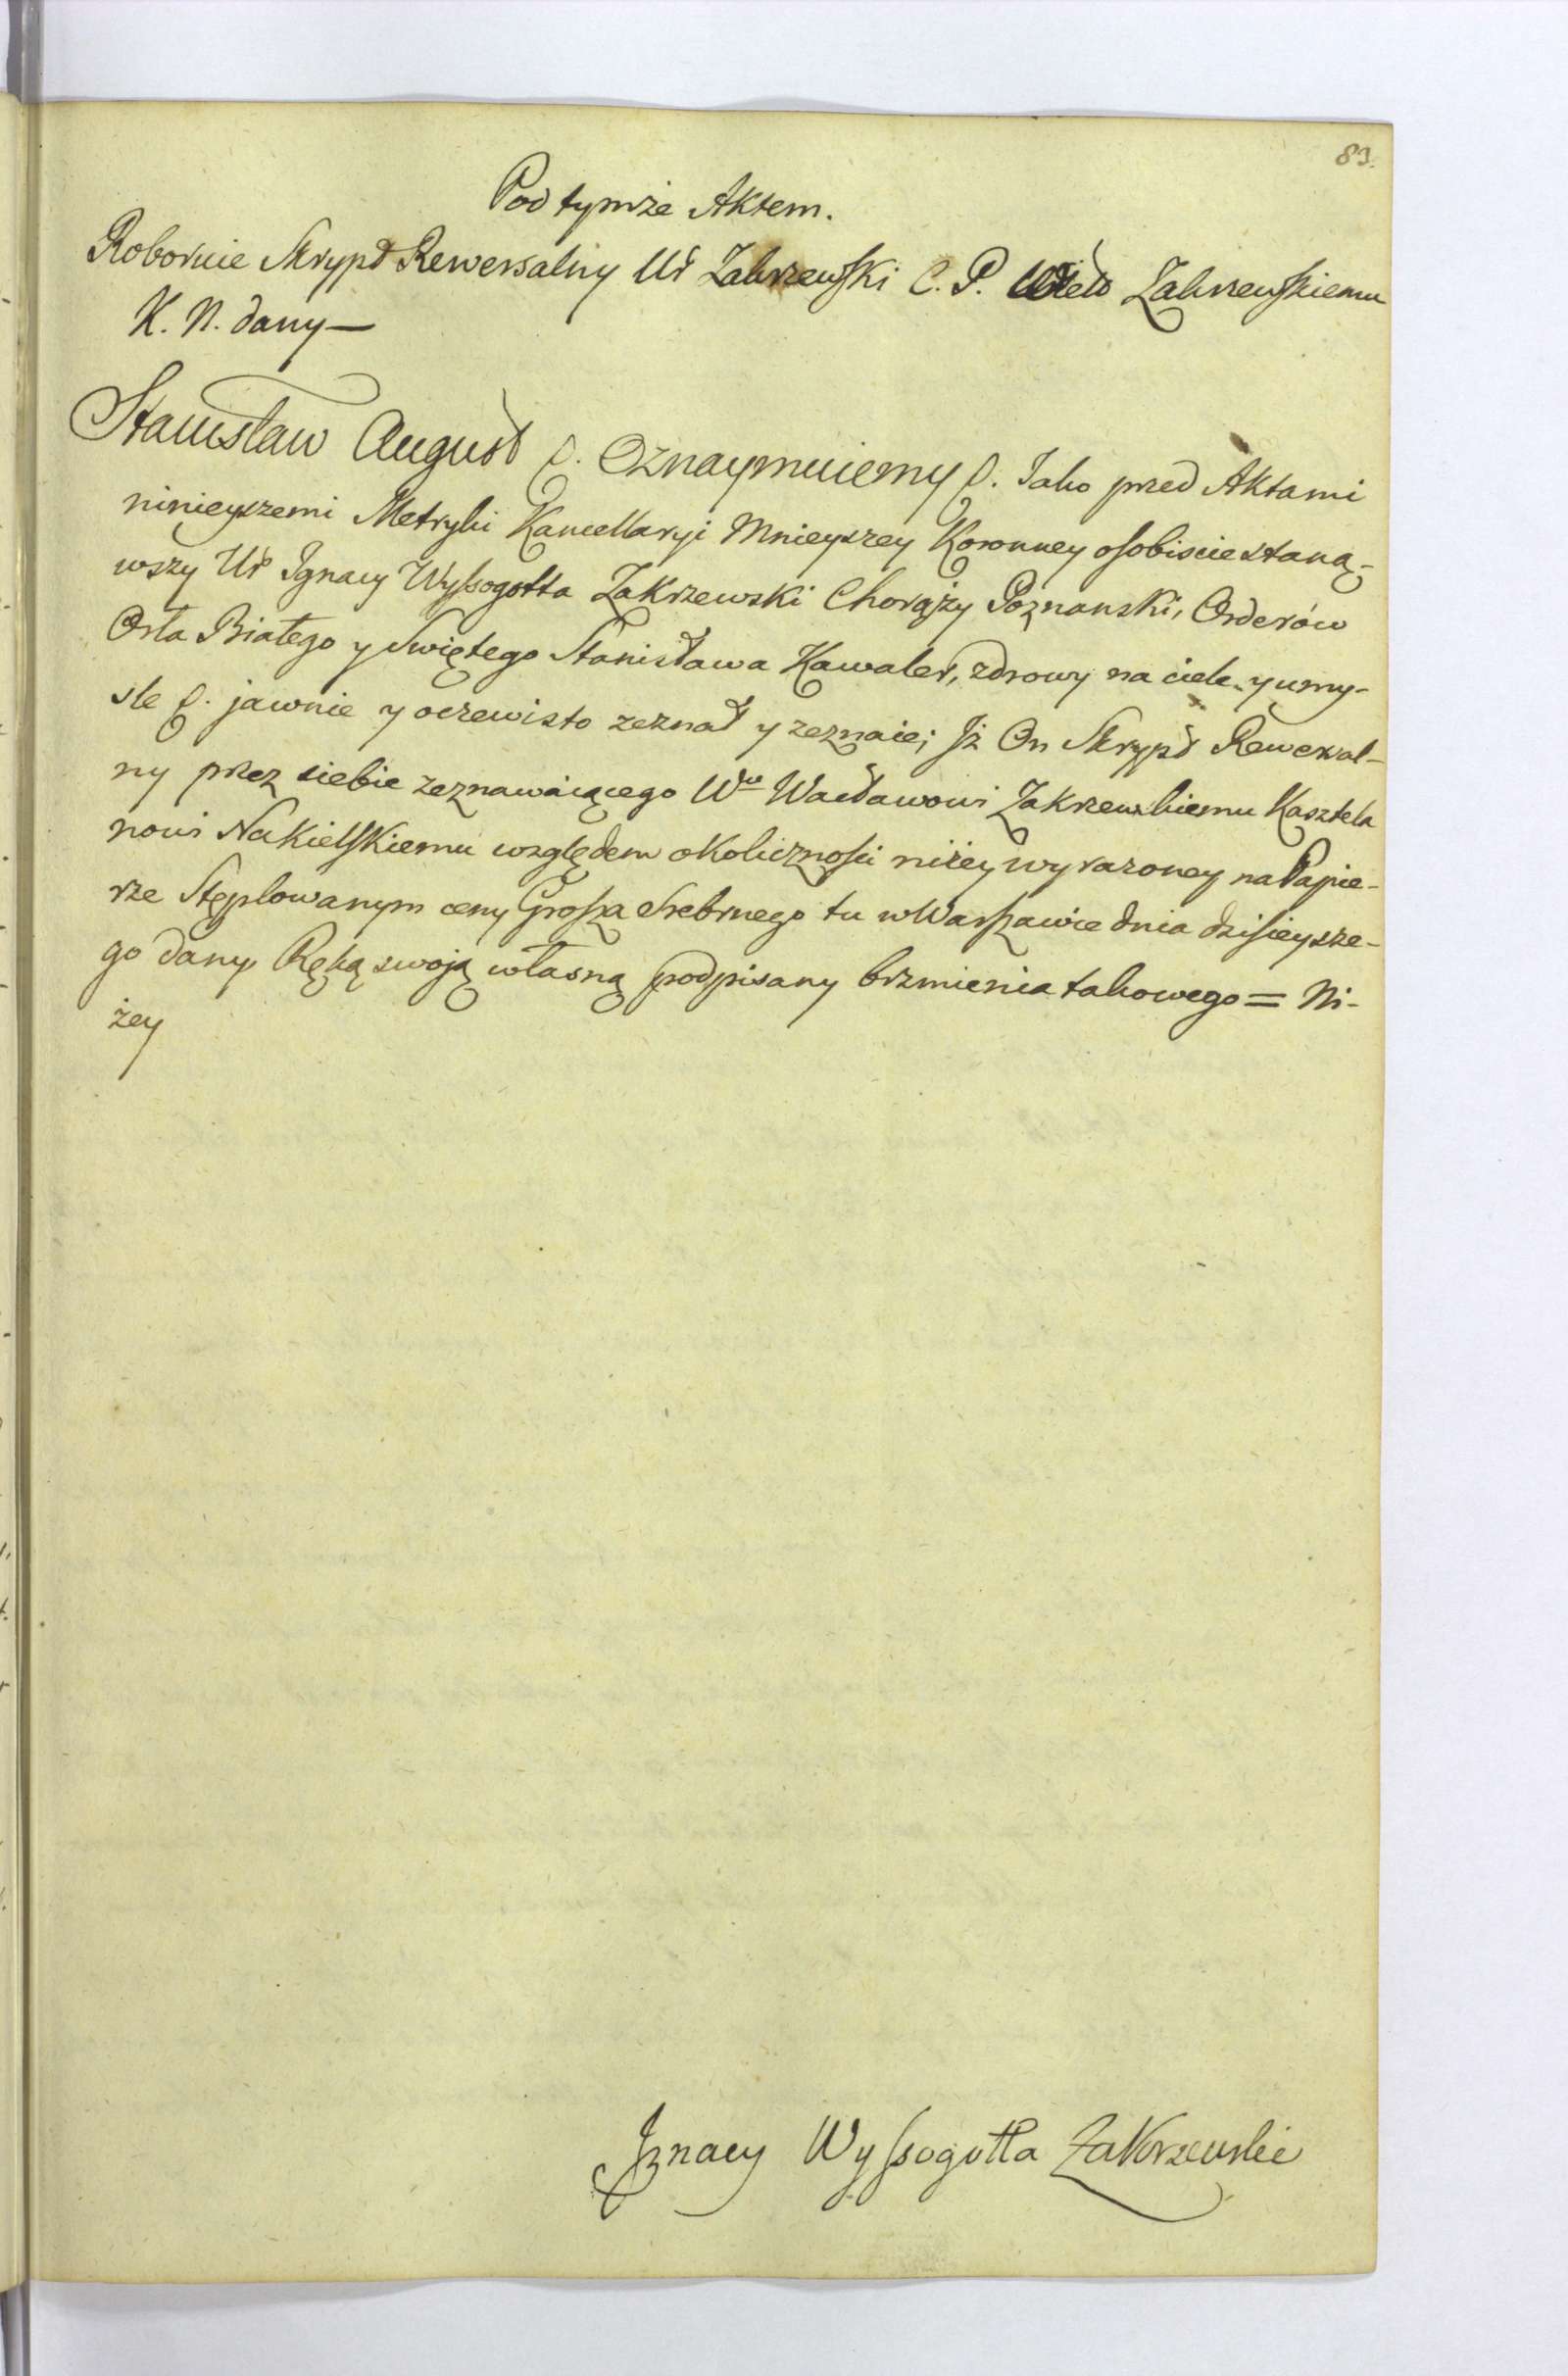 83.
Pod tymże Aktem.
Roboruie Skrypt Rewersalny Ur Zakrzewski C. P. Zakrzewskiemu
K. N. dany —
Stanisław August &. Oznaymuiemy &. Iako przed Aktami
ninieyszemi Metryki Kancellaryi Mnieyszey Koronney osobiscie staną-
wszy Ur Ignacy Wyssogotta Zakrzewski Chorąży Poznanski, Orderów
Orła Białego y Swiętego Stanisława Kawaler, zdrowy na ciele y umy-
sle &. jawnie y oczewisto zeznał y zeznaie; Iż On Skrypt Rewersal-
ny przez siebie zeznawaiącego Wu Wacławowi Zakrzewskiemu Kasztela
nowi Nakielskiemu względem okolicznosci niżey wyrazoney na Papie-
rze Stęplowanym ceny Grosza Srebrnego tu w Warszawie dnia dzisieysze-
go dany Ręką swoją własną podpisany brzmienia takowego = Ni-
żey
Ignacy Wyssogotta Zakrzewski